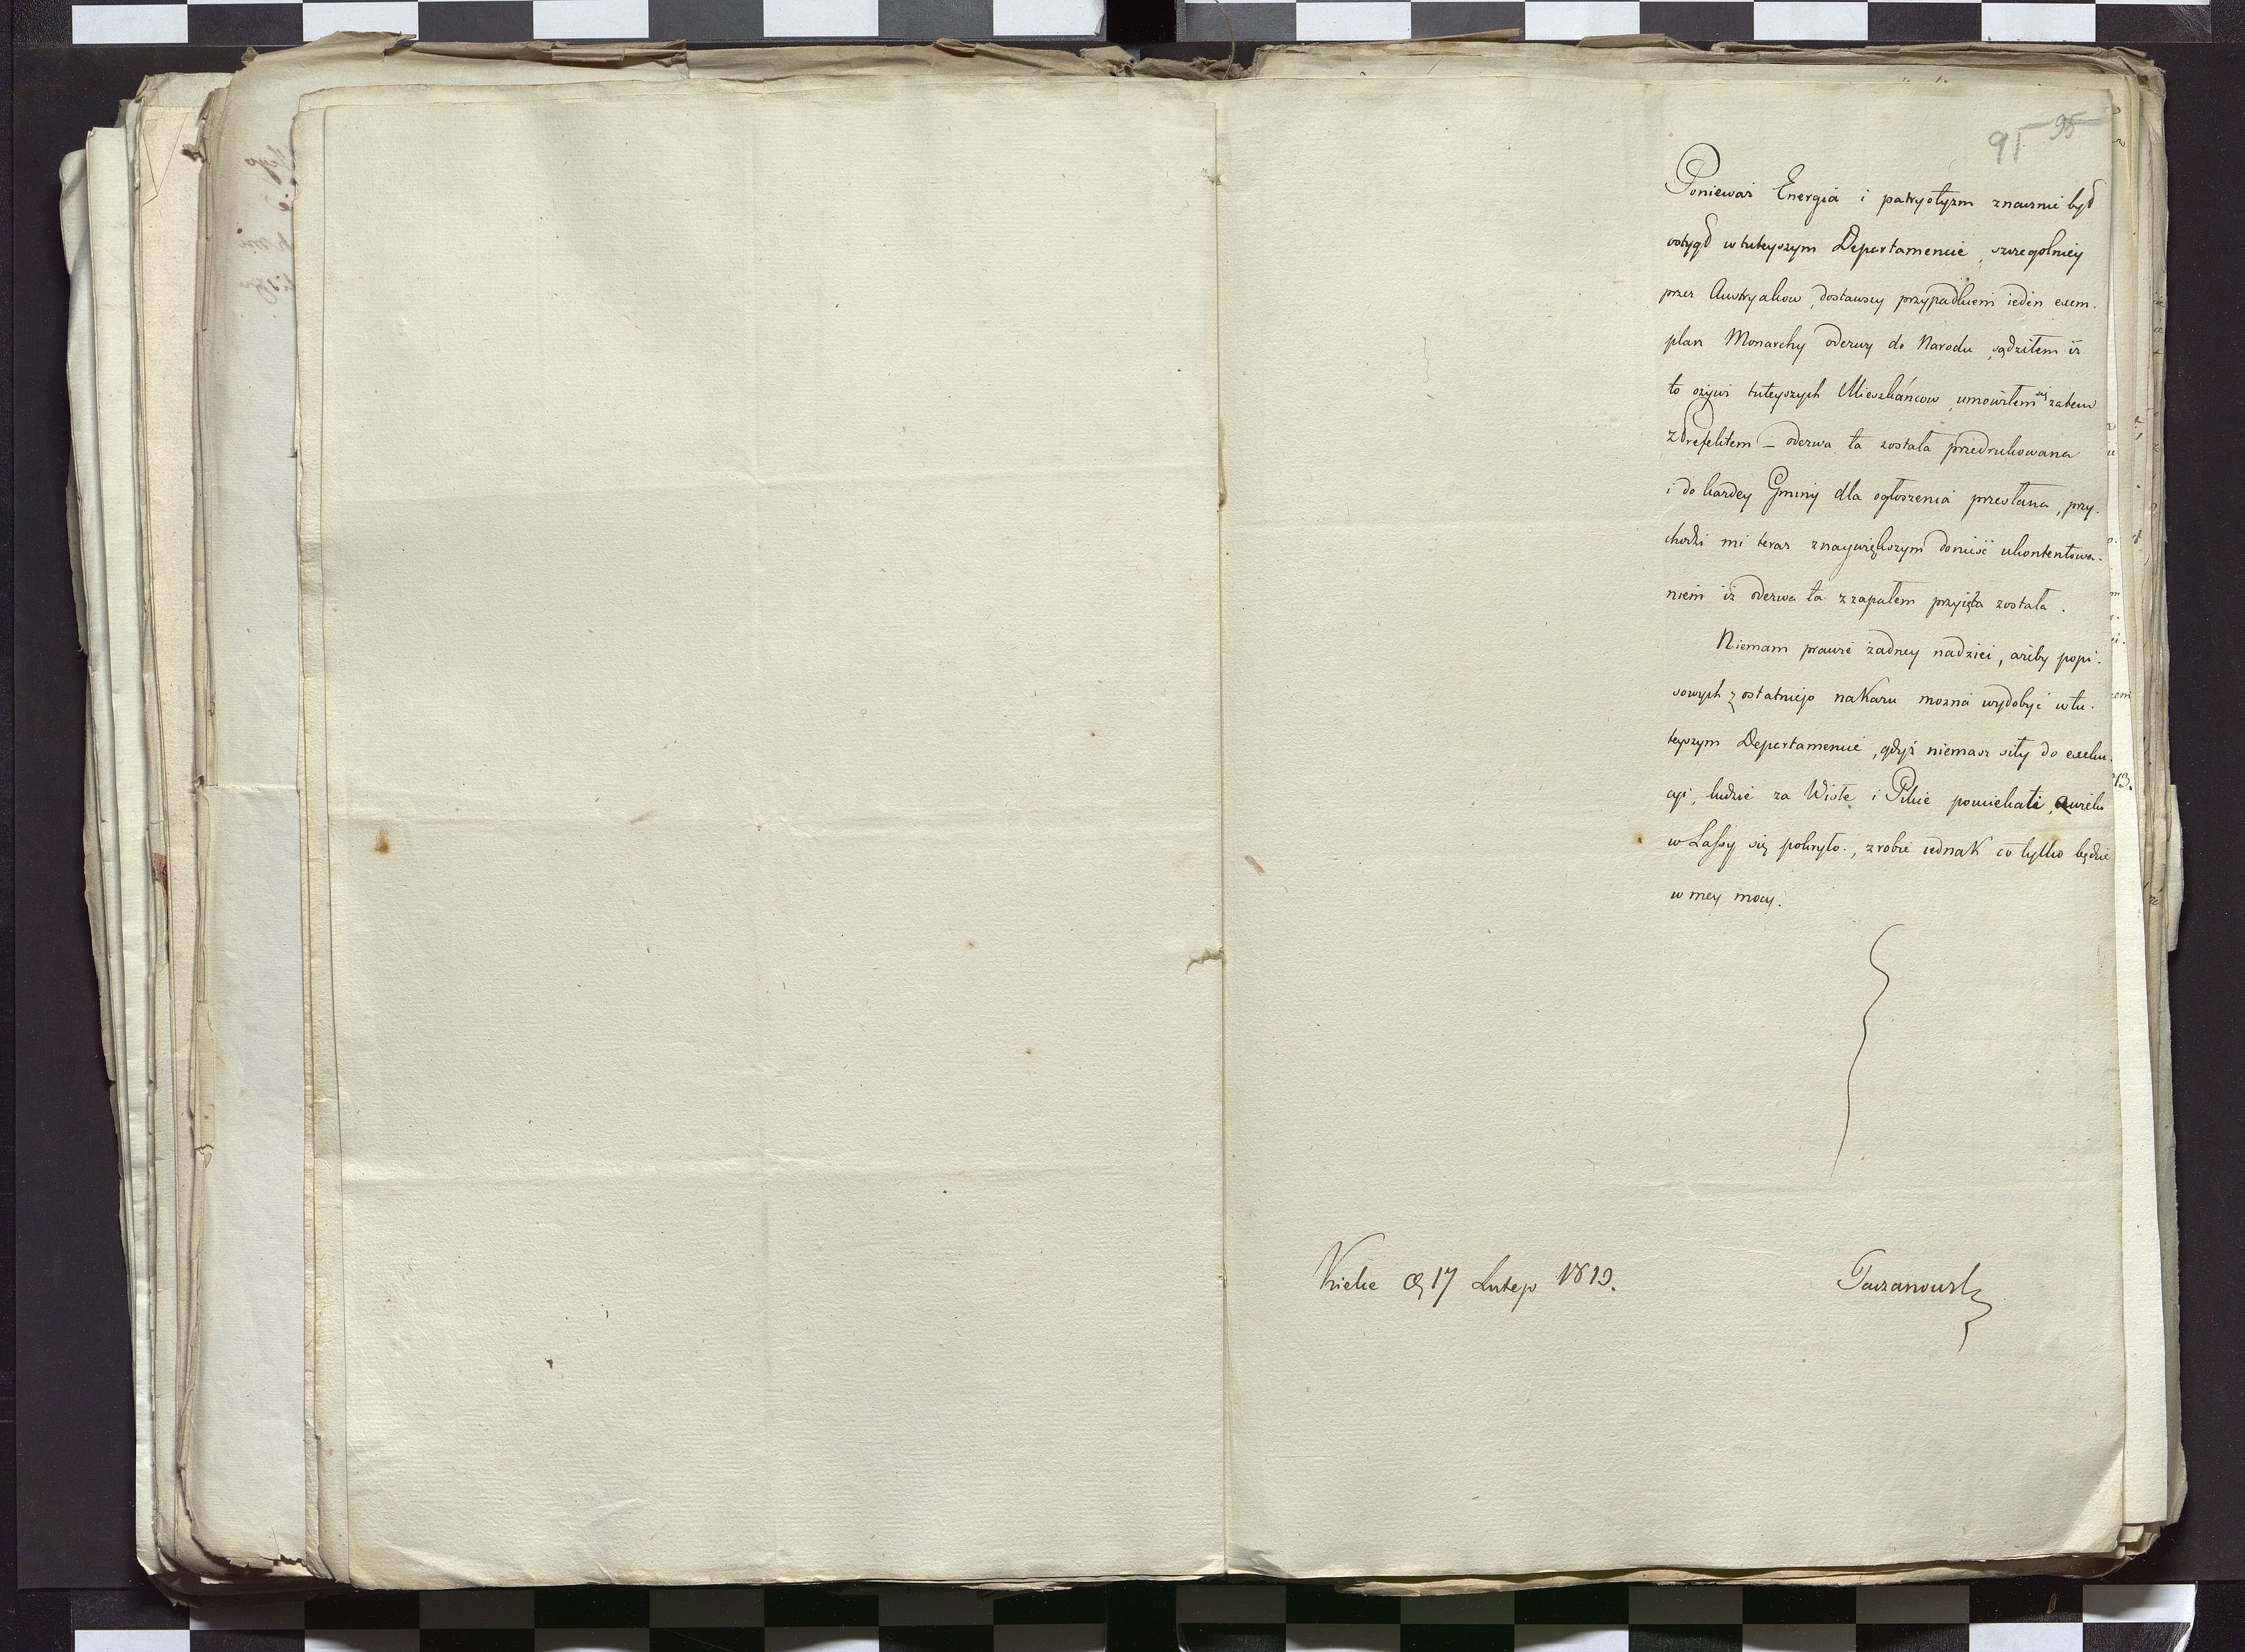 95 95
Poniewaz Energia i patryotyzm znacznie był
ostygł w tuteyszym Departamencie, szczegolniey
przez Austryakow, dostawszy przypadkiem ieden exem-
plarz Monarchy odezwy do Narodu, sądziłem iz
to ozywi tuteyszych Mieszkáncow, umowiłem się zatem
z Prefektem – odezwa ta została przedrukowana
i do kazdey Gminy dla ogłoszenia przesłana, przy-
chodzi mi teraz z naywiększym doniesć ukontentowa-
niem iz odezwa ta z zapałem przyięta została.
Niemam prawie żadney nadziei, azeby popi-
sowych z ostatniego naKazu mozna wydobyć w tu-
teyszym Departamencie, gdyż niemasz siły do exeku-
cyi, ludzie za Wisłe i Pilice pouciekali, a wielu
w Lassy się pokryło., zrobie iednak co tylko będzie
w mey mocy.
Kielce d 17 Lutego 1813.
Taczanowski